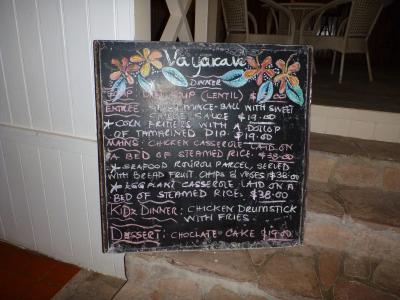 Vayakave
DINNER
(LENTIL)
ENTREE MINCE-BALL WITH SWEET
SAUCE $19.00
* CORN FRITTERS WITH A DOLLOP
OF TAMARINED DIP $19.00
MAINS: CHICKEN CASSEROLE LAID ON
A BED OF STEAMED RICE. $38.00
* SEAFOOD ROUROU PARCEL, SERVED
WITH BREAD FRUIT CHIPS & VEGES $38.00
* EGGPLANT CASSEROLE LAID ON A
BED OF STEAMED RICE. $38.00
KIDZ DINNER: CHICKEN DRUMSTICK
WITH FRIES
DESSERT: CHOCLATE CAKE $19.00